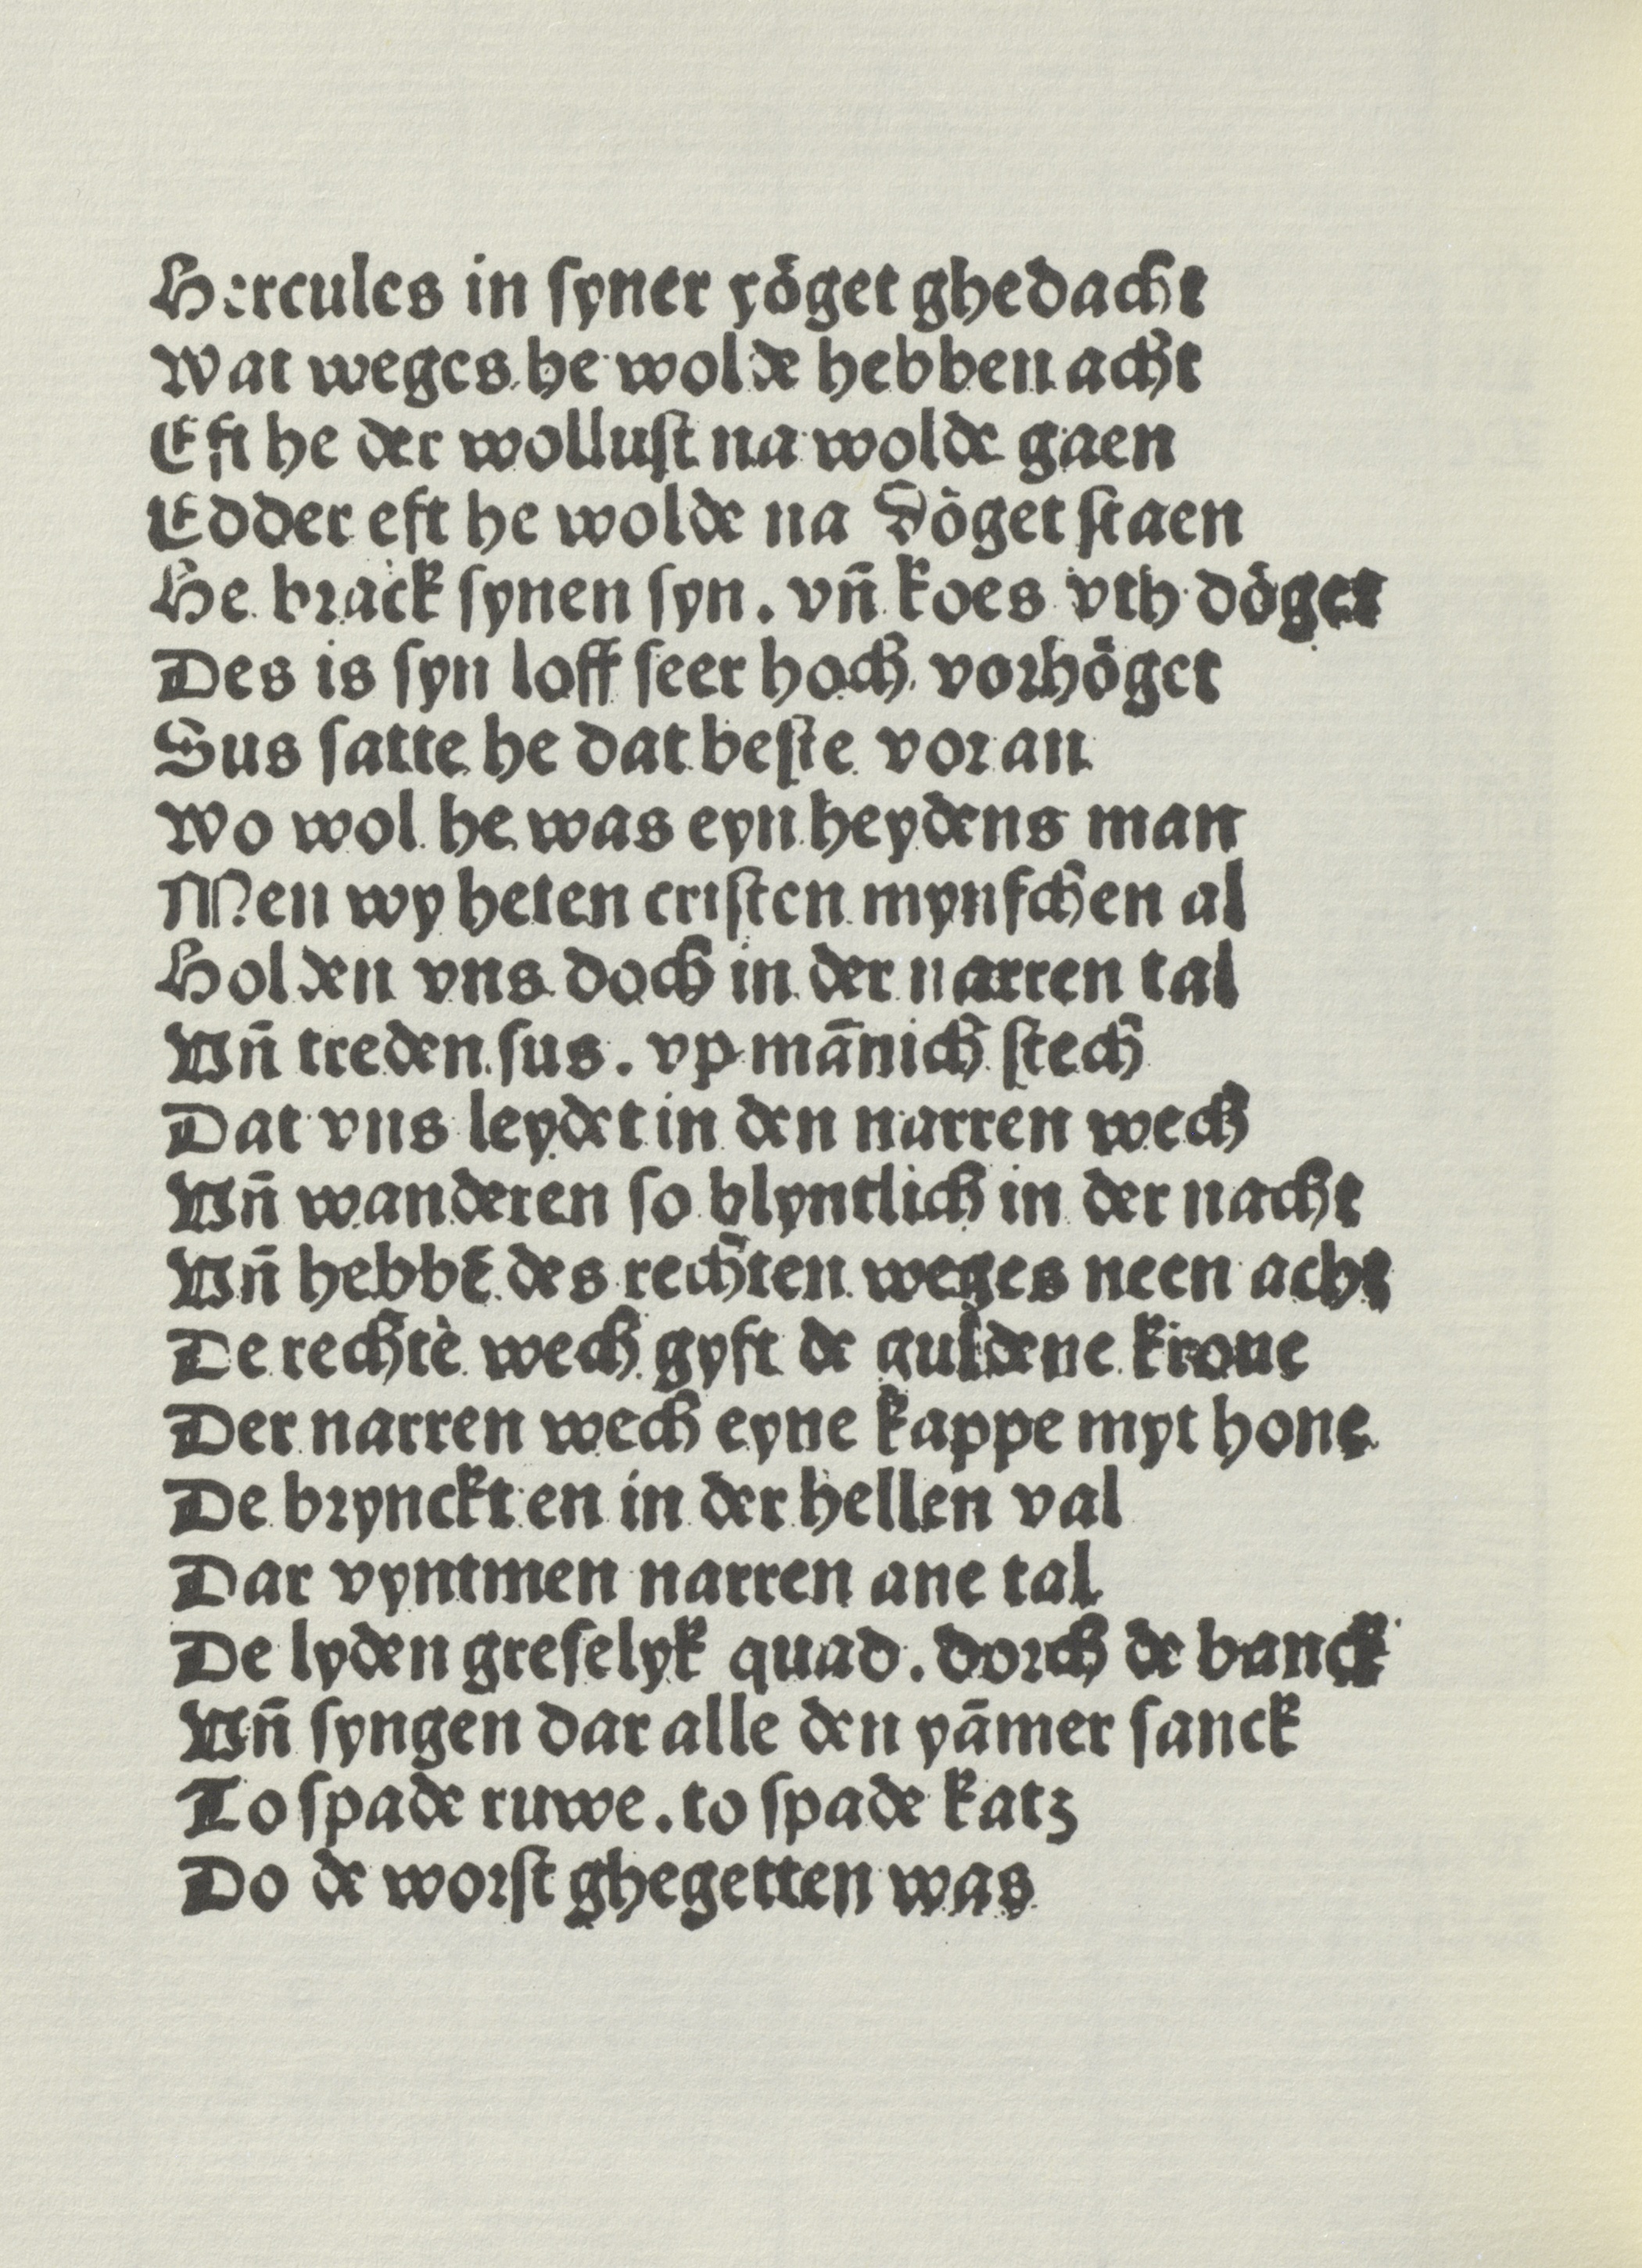 Hercules in ſyner yöget ghedacht
Wat weges he wolde hebben acht
Eft he der wolluſt na wolde gaen
Edder eft he wolde na Döget ſtaen
He brack ſynen ſyn. vn̄ koes vth döget
Des is ſyn loff ſeer hoch vorhöget
Sus ſatte he dat beſte vor an
Wo wol he was eyn heydens man
Men wy heten criſten mynſchen al
Holden vns doch in der narren tal
Vn̄ treden ſus. vp mānich ſtech
Dat vns leydet in den narren wech
Vn̄ wanderen ſo blyntlich in der nacht
Vn̄ hebbē des rechten weges neen acht
De rechte wech gyft de guldene krone
Der narren wech eyne kappe myt hone
De brynckt en in der hellen val
Dar vyntmen narren ane tal
De lyden greſelyk quad. dorch de banck
Vn̄ ſyngen dar alle den yāmer ſanck
To ſpade ruwe. to ſpade katz
Do de worſt ghegetten was